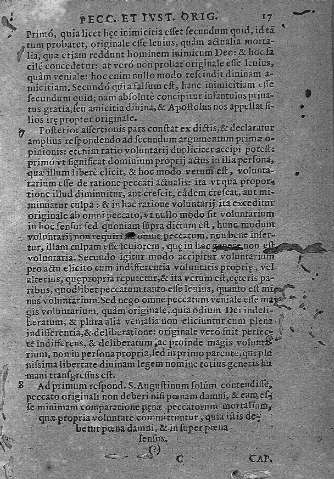 PECC. ET IVST. ORIG. 17
Primò, quia licet hęc inimicitia esset secundum quid, id etiā
tum probaret, originale esse leuius, quàm actualia morta-
lia, quæ etiam reddunt hominem inimicum Deo: & hoc fa
cilè concederet: at verò non probat originale esse leuius,
quàm veniale: hoc enim nullo modo rescindit diuinam a-
micitiam. Secundò quia falsum est, hanc inimicitiam esse
secundum quid: nam absolutè concipitur infantulus priua-
tus gratia, seu amicitia diuina, & Apostolus nos appellat fi-
lios iræ propter originale.
Posterior assertionis pars constat ex dictis, & declaratur
amplius respondendo ad secundum argumentum primæ o-
pinionis: etenim ratio voluntarij dupliciter accipi potest:
primò vt significat dominium proprij actus in illa persona,
quæ illum liberè elicit, & hoc modo verum est, volunta-
rium esse de ratione peccati actualis: ita vt qua propor-
tione illud diminuitur, aut crescit, eadem crescat, aut mi-
minuatur culpa: & in hac ratione voluntarij ita exceditur
originale ab omni peccato, vt nullo modo sit voluntarium
in hoc sensu: sed quoniam supra dictum est, hunc modum
voluntarij non requiri omne peccatum, non bene infer-
tur, illam culpam esse leuiorem, quę in hoc genere non est
voluntaria. Secundo igitur modo accipitur voluntarium
pro actu elicito cum indifferentia voluntatis propriæ, vel
alterius, quæ propria reputetur, & ita verum est, cęteris pa-
ribus, quodlibet peccatum tanto esse leuius, quanto est mi-
nus voluntarium. Sed nego omne peccatum veniale esse ma-
gis voluntarium, quàm originale, quia odium Dei indeli-
beratum, & plura alia venialia non eliciuntur cum plena
indifferentia, & deliberatione: originale verò fuit perfe-
ctè indifferens, & deliberatum, ac proinde magis volunta-
rium, non in persona propria, sed in primo parente, qui ple-
nissima libertate diuinam legem nomine totius generis hu
mani transgressus est.
8 Ad primum respond. S. Augustinum solum contendisse,
peccato originali non deberi nisi pœnam damni, & eam es-
se minimam comparatione pœnæ peccatorum mortalium,
quæ propria voluntate committuntur, quia istis de-
betur pœna damni, & insuper pœna
sensus.
(?)
C CAP.